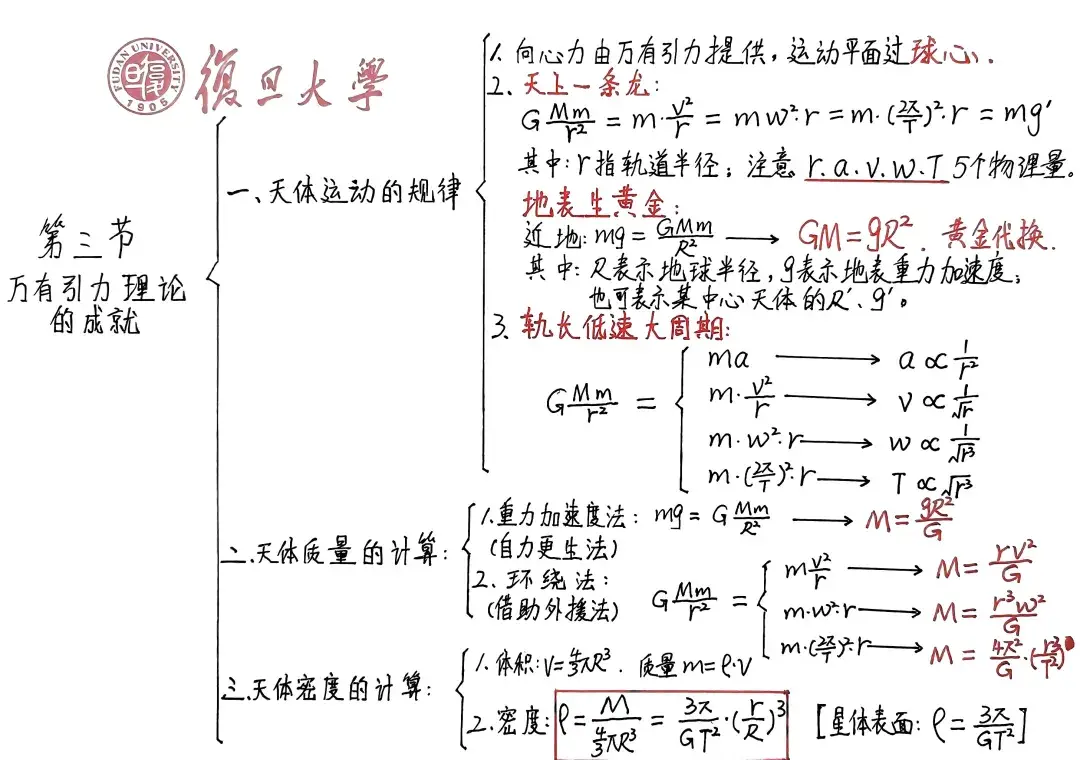 FUDAN UNIVERSITY
1905
復旦大學
第三节
万有引力理论
的成就
一、天体运动的规律
1. 向心力由万有引力提供，运动平面过球心.
2. 天上一条龙:
G Mm/r² = m·v²/r = mw²·r = m·(2π/T)²·r = mg′
其中: r指轨道半径; 注意 r.a.v.w.T 5个物理量。
地表生黄金:
近地: mg = GMm/R² → GM=gR². 黄金代换.
其中: R表示地球半径, g表示地表重力加速度;
也可表示某中心天体的R′、g′。
3. 轨长低速大周期:
G Mm/r² =
ma → a ∝ 1/r²
m·v²/r → v ∝ 1/√r
m·w²·r → w ∝ 1/√r³
m·(2π/T)²·r → T ∝ √r³
二、天体质量的计算:
1. 重力加速度法: mg = G Mm/R² → M = gR²/G
(自力更生法)
2. 环绕法:
(借助外援法)
G Mm/r² =
m v²/r → M = rv²/G
m·w²·r → M = r³w²/G
m·(2π/T)²·r → M = 4π²/G·(r³/T²)
三、天体密度的计算:
1. 体积: V=4/3πR³. 质量m=ρ·V
2. 密度: ρ = M/(4/3πR³) = 3π/GT²·(r/R)³ [星体表面: ρ = 3π/GT²]